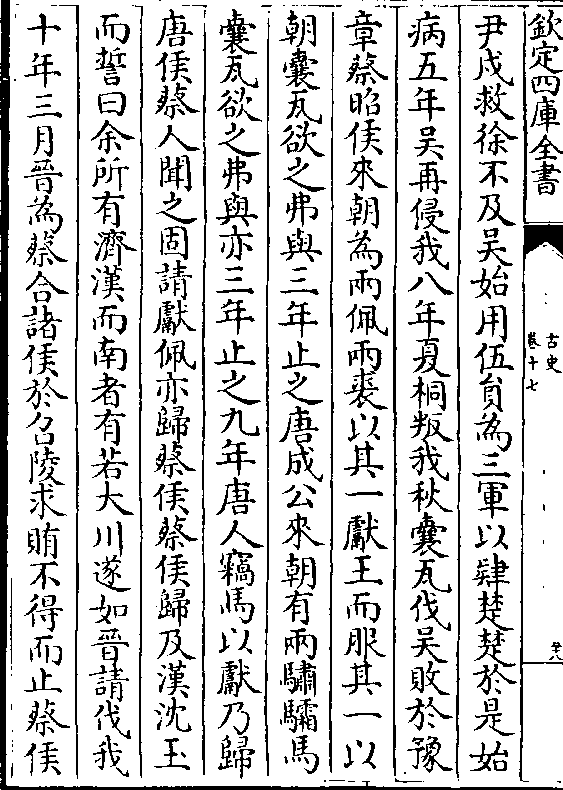 欽定四庫全書
古史
卷十七
尹戌救徐不及吳始用伍員為三軍以肄楚楚於是始
病五年吳再侵我八年夏桐叛我秋囊瓦伐吳敗於豫
章蔡昭侯來朝為兩佩兩裘以其一獻王而服其一以
朝囊瓦欲之弗與三年止之唐成公來朝有兩驌驦馬
囊瓦欲之弗與亦三年止之九年唐人竊馬以獻乃歸
唐侯蔡人聞之固請獻佩亦歸蔡侯蔡侯歸及漢沈玉
而誓曰余所有濟漢而南者有若大川遂如晉請伐我
十年三月晉為蔡合諸侯於召陵求賄不得而止蔡侯